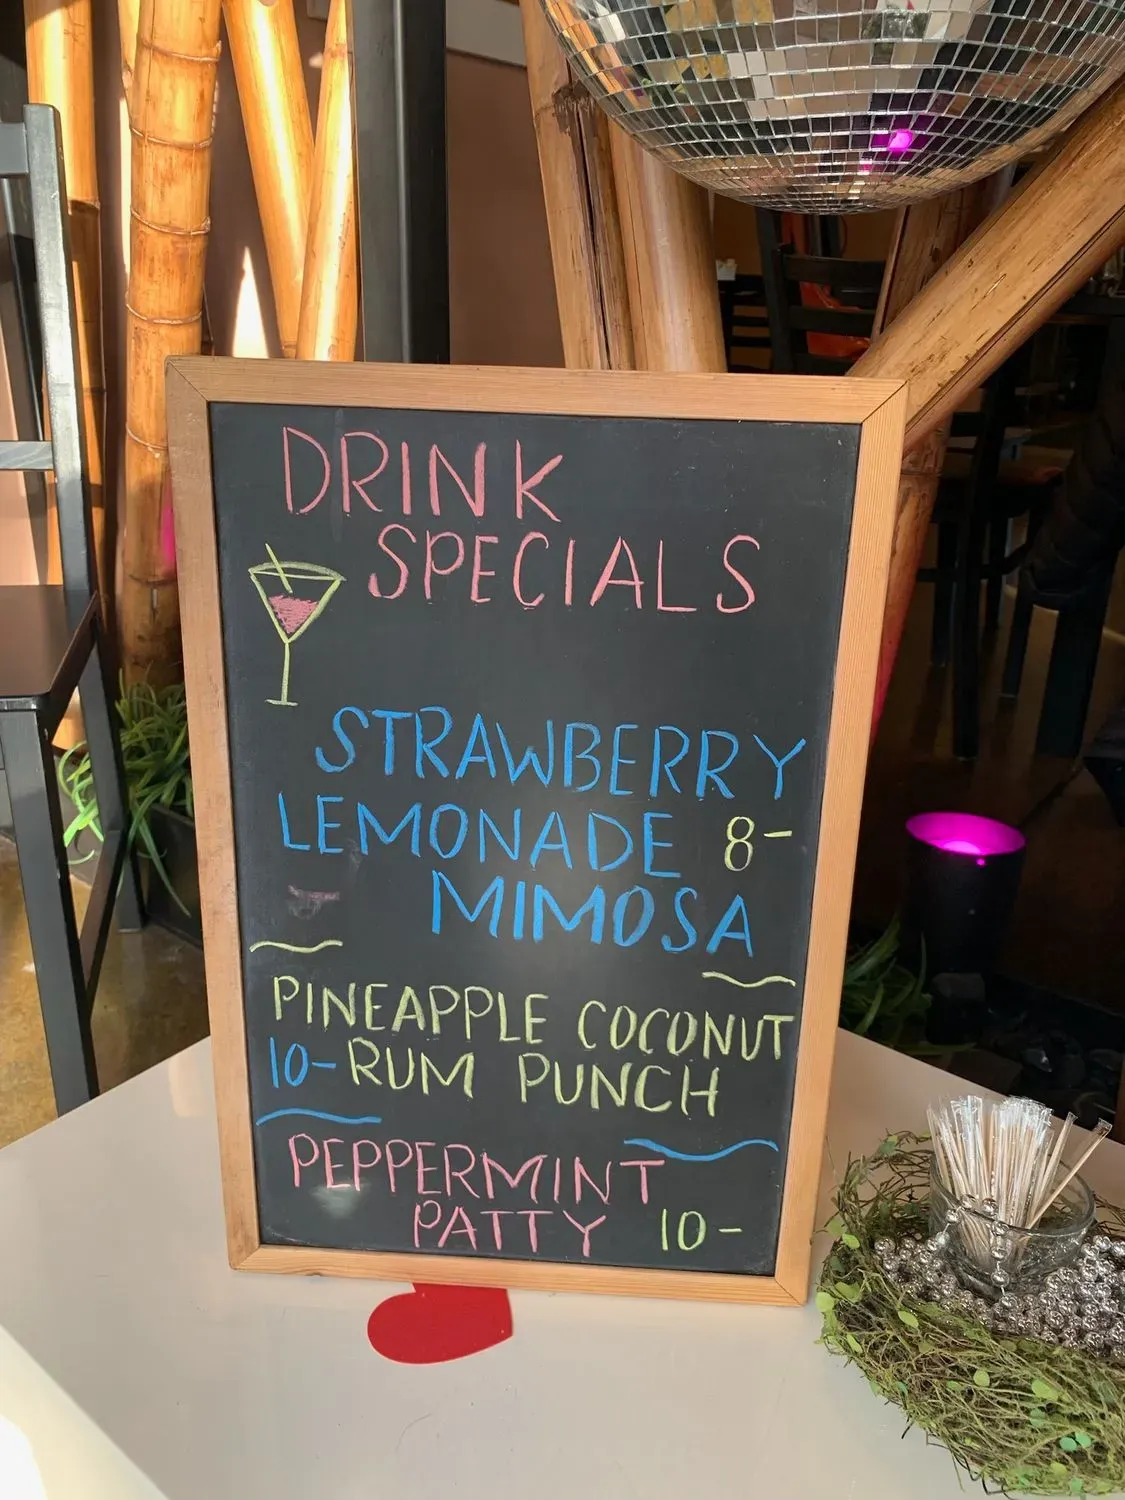 DRINK
SPECIALS
STRAWBERRY
LEMONADE 8-
MIMOSA
PINEAPPLE COCONUT
10- RUM PUNCH
PEPPERMINT
PATTY 10-